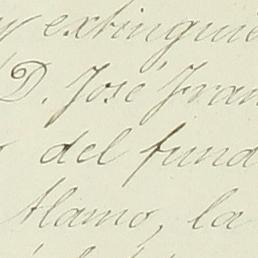 y extinguié
D. José Fran
del fund
Alamo, la